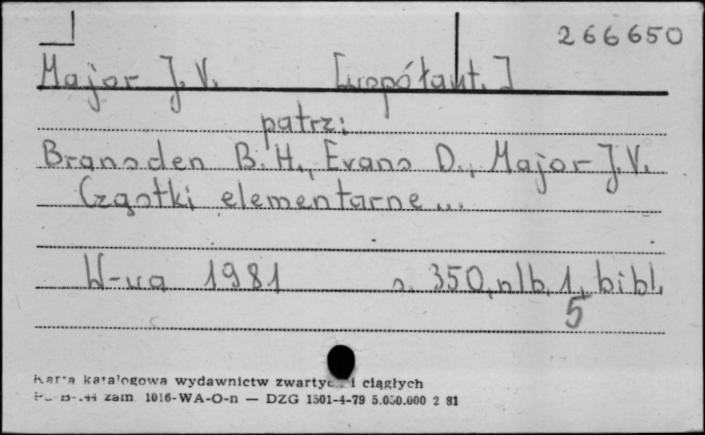 266650
Major J. V. [współaut.]
patrz:
Bransden B. H., Evans D., Major J. V.
Cząstki elementarne...
W-wa 1981 s. 350, nlb. 1, bibl.
5
Karta katalogowa wydawnictw zwartych i ciągłych
zam. 1016-WA-O-n — DZG 1501-4-79 5.050.000 2 81